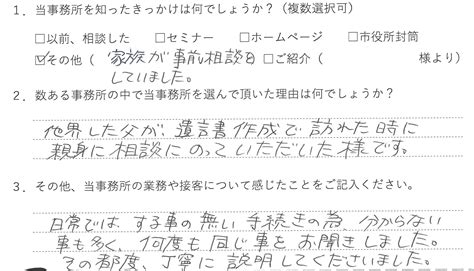 1．当事務所を知ったきっかけは何でしょうか？（複数選択可）
□以前、相談した　□セミナー　□ホームページ　□市役所封筒
☑その他（家族が事前相談を　□ご紹介（　　　　様より）
していました。
2．数ある事務所の中で当事務所を選んで頂いた理由は何でしょうか？
他界した父が、遺言書作成で訪れた時に
親身に相談にのっていただいた様です。
3．その他、当事務所の業務や接客について感じたことをご記入ください。
日常では、する事の無い手続きの為、分からない
事も多く、何度も同じ事をお聞きしました。
その都度、丁寧に説明してくださいました。